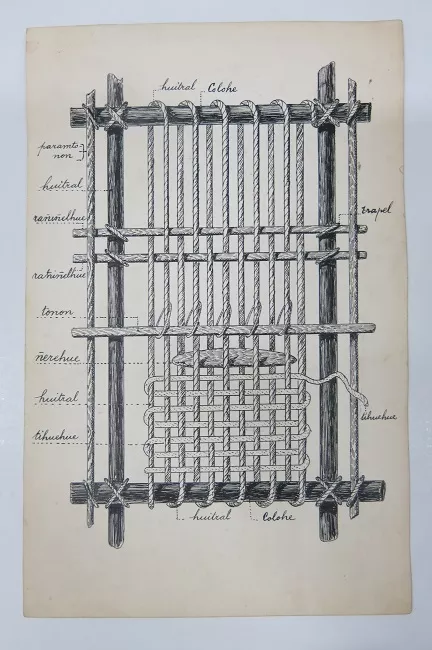 huitral Colohe
paramto
non
huitral
rañiñelhue
trapel
rañiñelhue
tonon
ñerehue
huitral
tihuehue
tihuehue
huitral Colohe